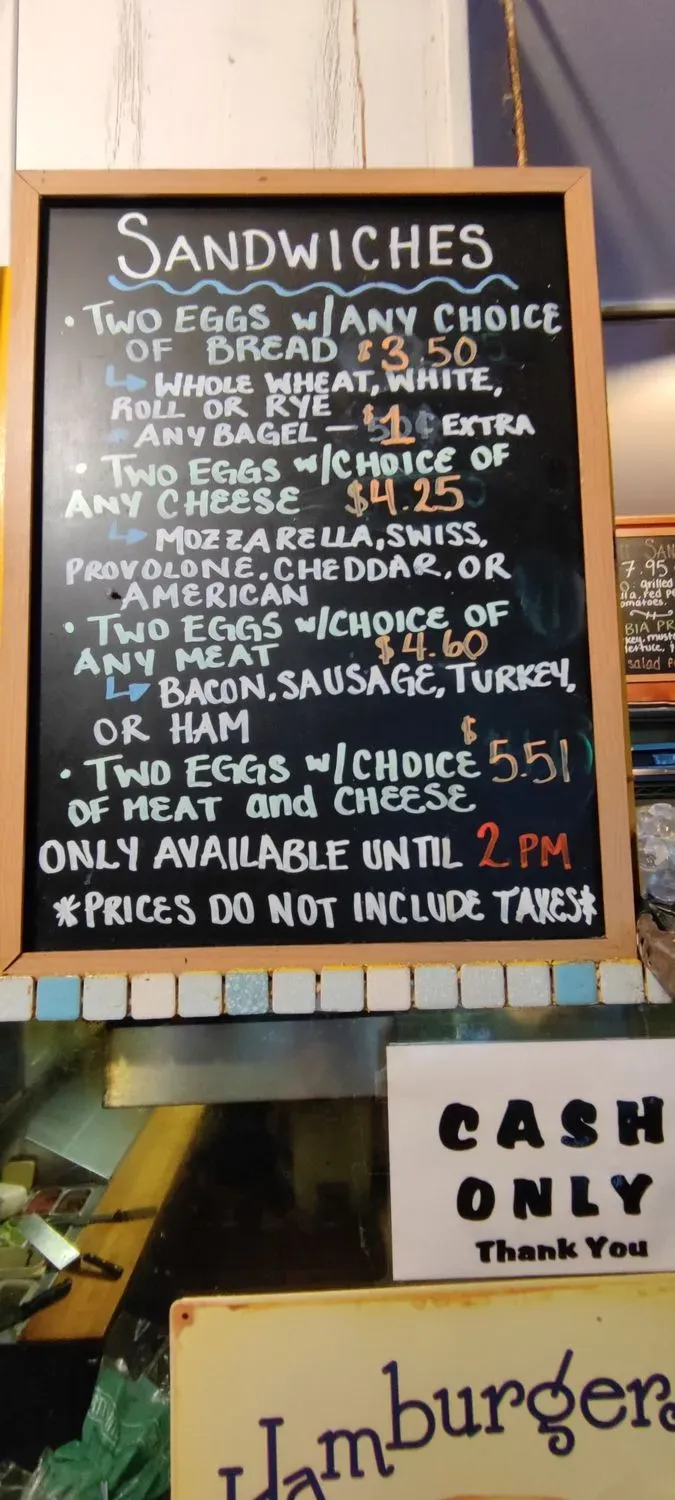 SANDWICHES
• TWO EGGS w/ANY CHOICE
OF BREAD $3.50
WHOLE WHEAT, WHITE,
ROLL OR RYE
ANY BAGEL — $1 EXTRA
• TWO EGGS w/CHOICE OF
ANY CHEESE $4.25
MOZZARELLA, SWISS,
PROVOLONE, CHEDDAR, OR
AMERICAN
• TWO EGGS w/CHOICE OF
ANY MEAT $4.60
BACON, SAUSAGE, TURKEY,
OR HAM
• TWO EGGS w/CHOICE $5.51
OF MEAT and CHEESE
ONLY AVAILABLE UNTIL 2 PM
*PRICES DO NOT INCLUDE TAXES*
SAN
7.95
grilled
red
omatoes.
salad
CASH
ONLY
Thank You
Hamburgers